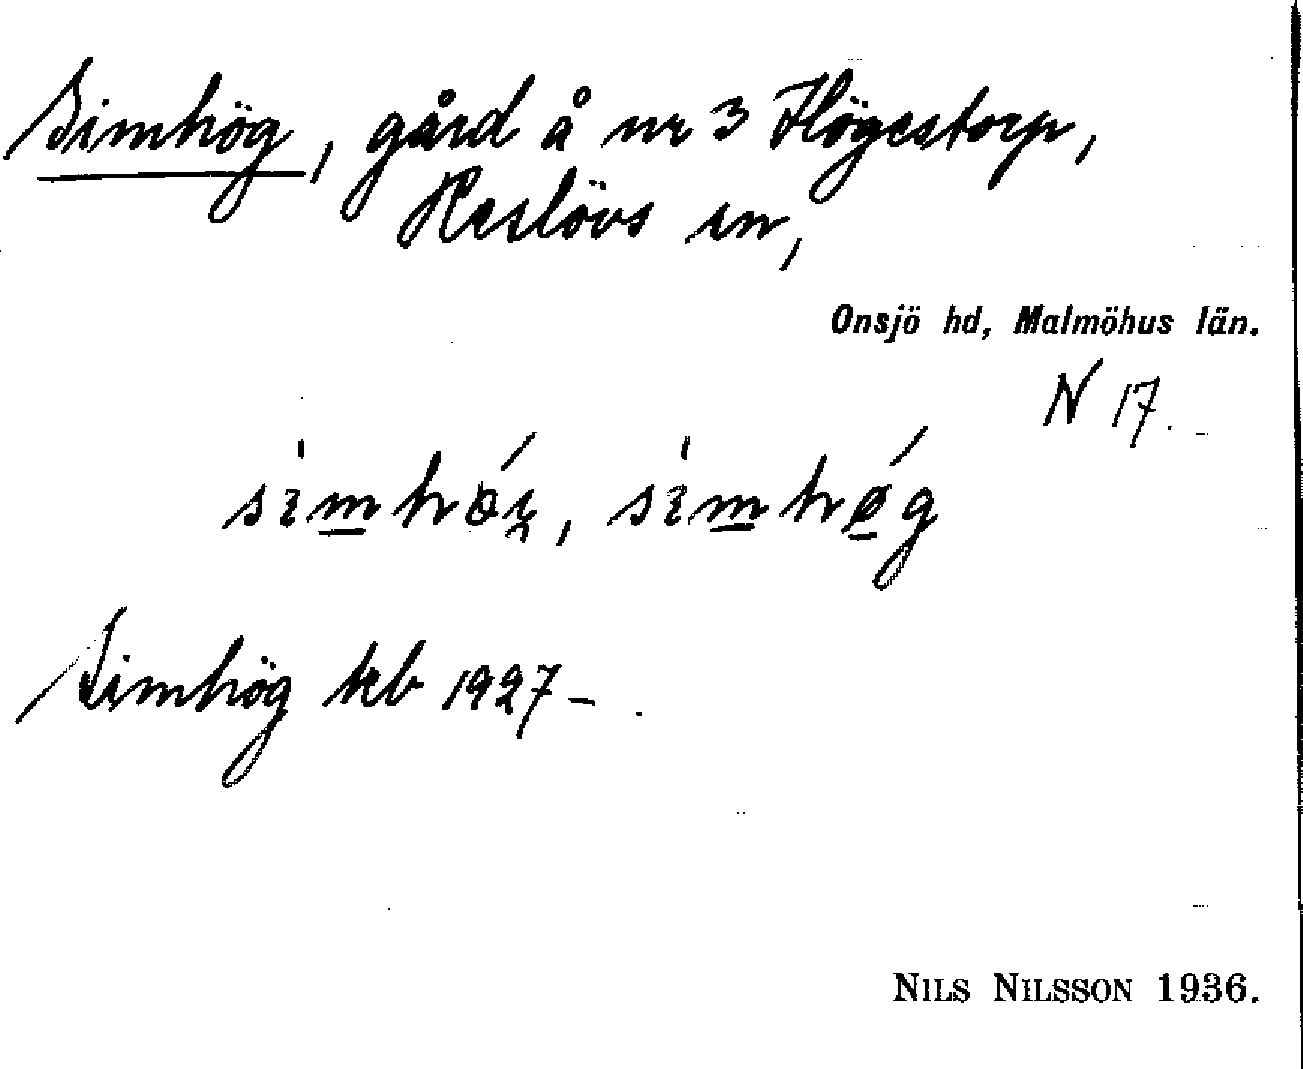 Simhög, gård å nr 3 Högestorp,
Reslövs sn,
Onsjö hd, Malmöhus län.
N 17.
simhög
Simhög kb 1927 –
NILS NILSSON 1936.